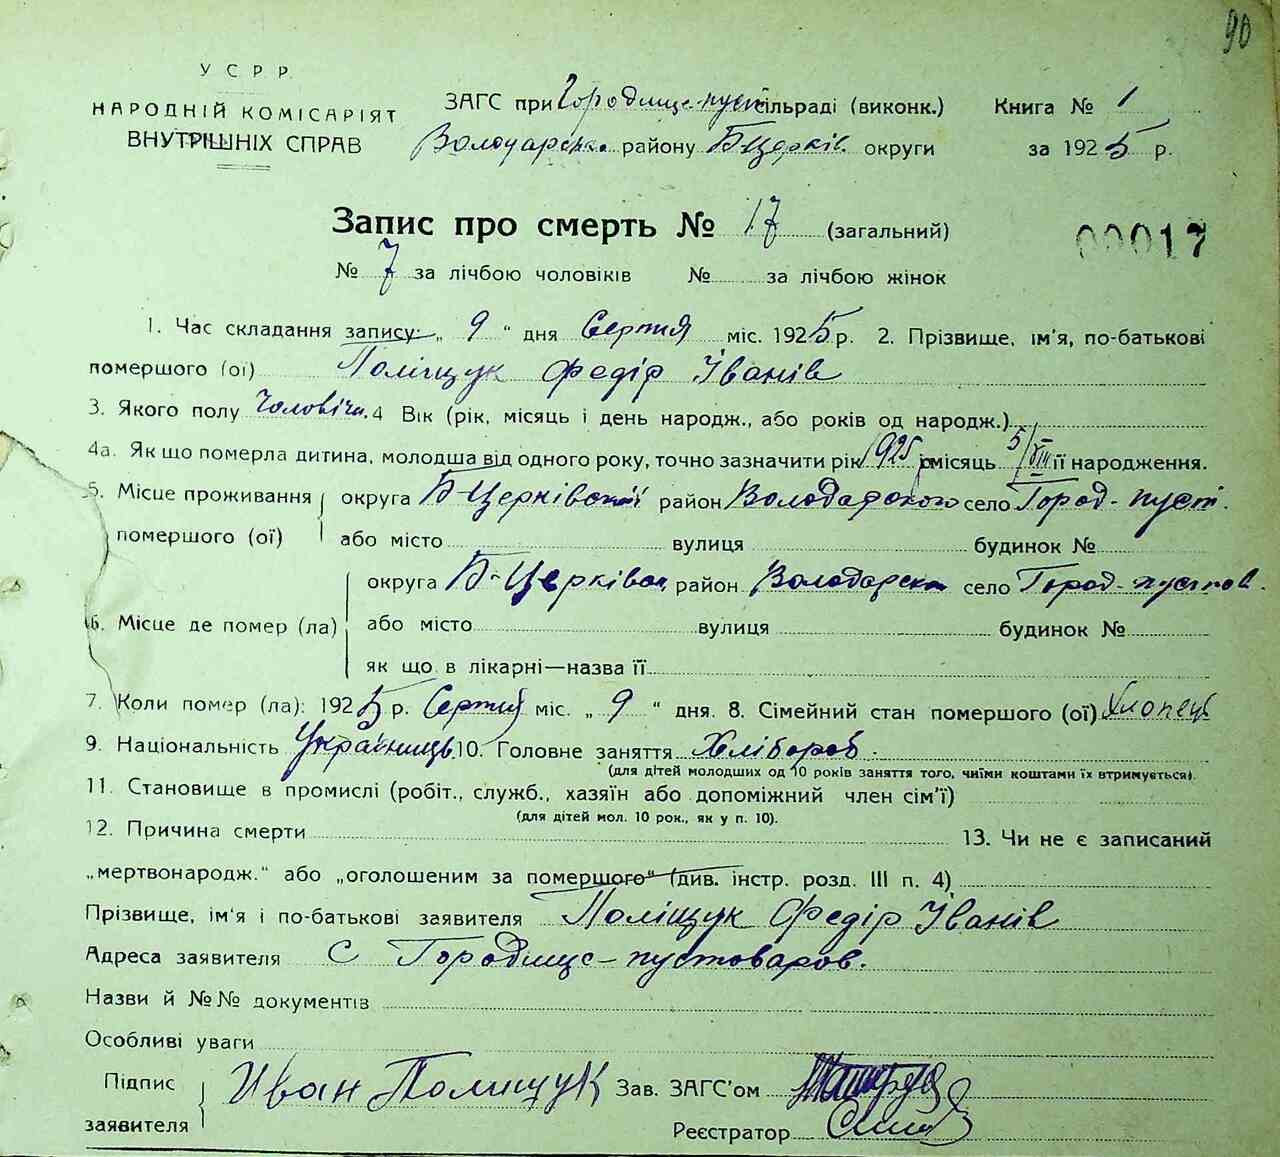 90
У С Р Р
НАРОДНІЙ КОМІСАРІЯТ
ВНУТРІШНІХ СПРАВ
ЗАГС при Городище-пуст сільраді (виконк.) Книга № 1
Володарська району Б Церків. округи за 1925 р.
Запис про смерть № 17 (загальний)
00017
№ 7 за лічбою чоловіків № за лічбою жінок
1. Час складання запису: „ 9 “ дня Серпня міс. 1925 р. 2. Прізвище, ім'я, по-батькові
помершого (ої) Поліщук Федір Іванів
3. Якого полу Чоловічи. 4 Вік (рік, місяць і день народж., або років од народж.)
4а. Як що померла дитина, молодша від одного року, точно зазначити рік 1925 місяць 5/VIII її народження.
5. Місце проживання округа Б-Церківської район Володарського село Город-пуст.
помершого (ої) або місто вулиця будинок №
округа Б-Церківсь район Володарськ село Город-пустов.
6. Місце де помер (ла) або місто вулиця будинок №
як що в лікарні—назва її
7. Коли помер (ла): 1925 р. Серпня міс. „ 9 “ дня. 8. Сімейний стан помершого (ої) Хлопець
9. Національність Українець 10. Головне заняття Хлібороб.
(для дітей молодших од 10 років заняття того, чиїми коштами їх втримується).
11. Становище в промислі (робіт., служб., хазяїн або допоміжний член сім'ї)
(для дітей мол. 10 рок., як у п. 10).
12. Причина смерти 13. Чи не є записаний
„мертвонародж.“ або „оголошеним за помершого“ (див. інстр. розд. III п. 4)
Прізвище, ім'я і по-батькові заявителя Поліщук Федір Іванів
Адреса заявителя С Городище-пустоваров.
Назви й №№ документів
Особливі уваги
Підпис Иван Полищук Зав. ЗАГС'ом
заявителя Реєстратор